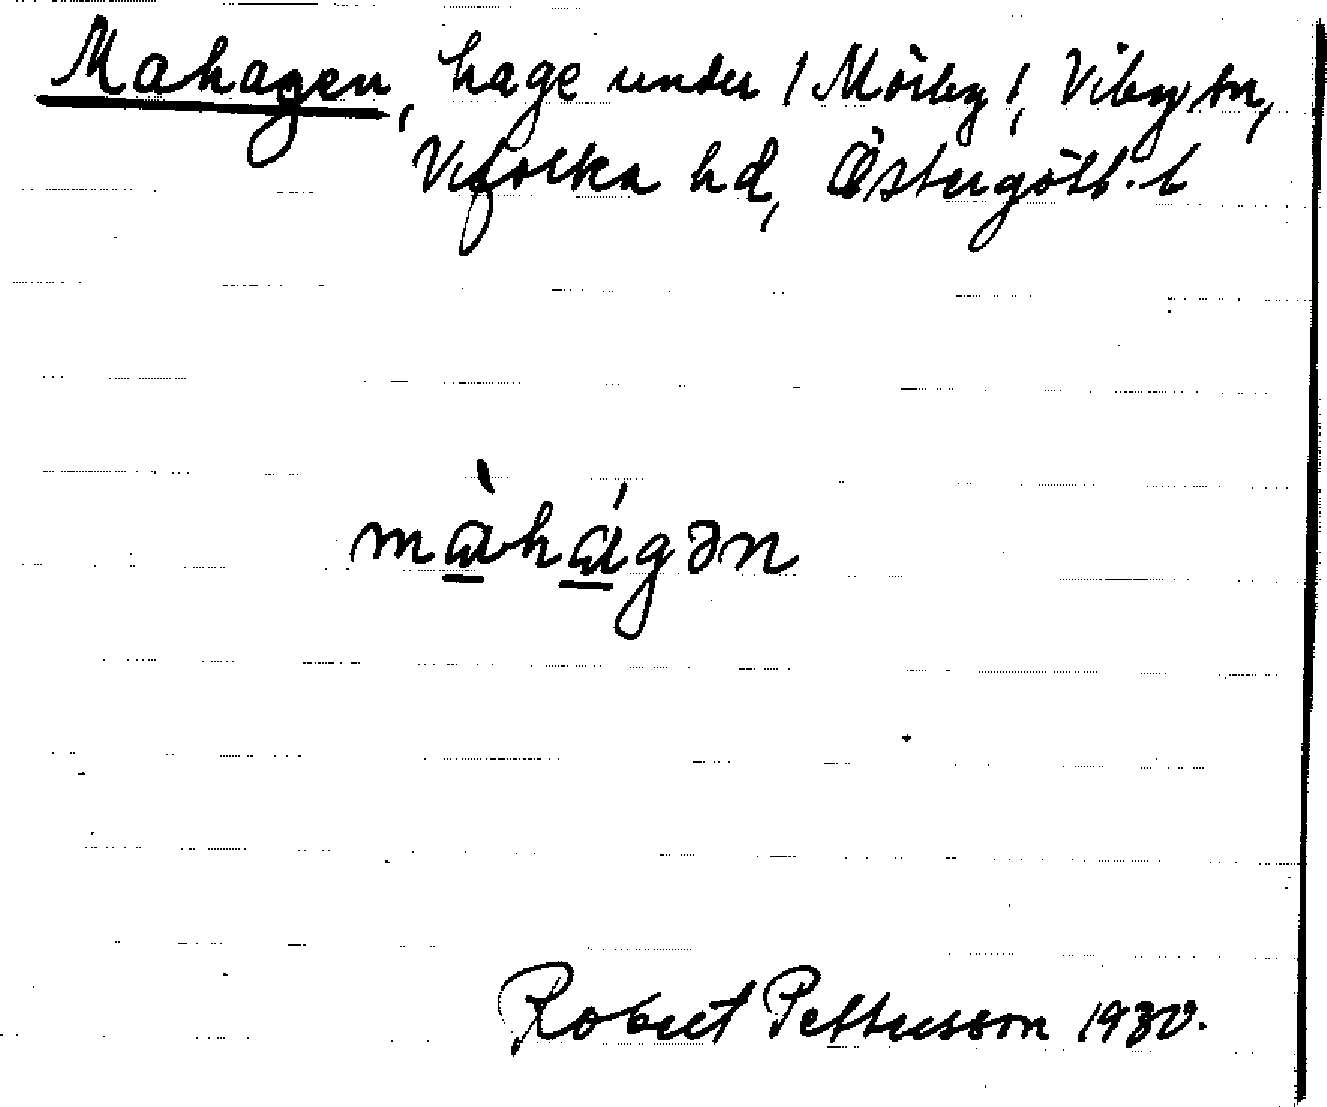 Mahagen, hage under /Mörby/, Viby sn,
Vifolka hd, Östergötl. l
màhágən
Robert Pettersson 1930.